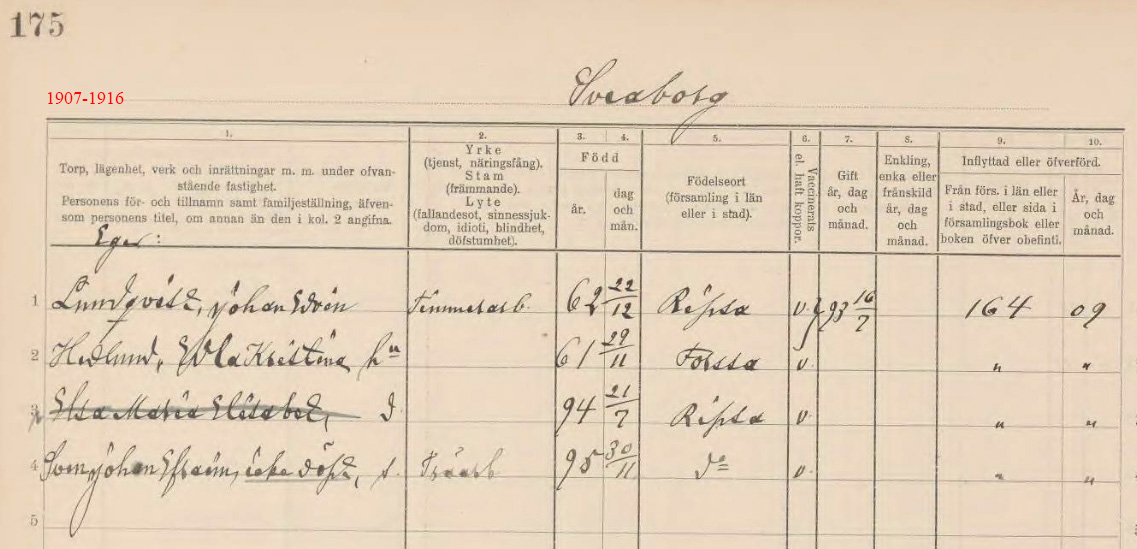 175
1907-1916
Sveaborg
1. 2. 3. 4. 5. 6. 7. 8. 9. 10.
Torp, lägenhet, verk och inrättningar m. m. under ofvan-
stående fastighet.
Personens för- och tillnamn samt familjeställning, äfven-
som personens titel, om annan än den i kol. 2 angifna.
Eger:
Yrke
(tjenst, näringsfång).
Stam
(främmande).
Lyte
(fallandesot, sinnessjuk-
dom, idioti, blindhet,
döfstumhet).
Född
år.
dag
och
mån.
Födelseort
(församling i län
eller i stad).
Vaccinerats
el. haft koppor.
Gift
år, dag
och
månad.
Enkling,
enka eller
frånskild
år, dag
och
månad.
Inflyttad eller öfverförd.
Från förs. i län eller
i stad, eller sida i
församlingsbok eller
boken öfver obefintl.
År, dag
och
månad.
1 Lundqvist, Johan Edvin Timmerarb. 62 22/12 Ripsa v. 93 16/7 164 09
2 Hedlund, Edla Kristina hu 61 29/11 Forssa v. " "
3 Elsa Maria Elisabet, d 94 21/7 Ripsa v. " "
4 Sven Johan Efraim, icke döpt, s. 95 30/11 do v. " "
5